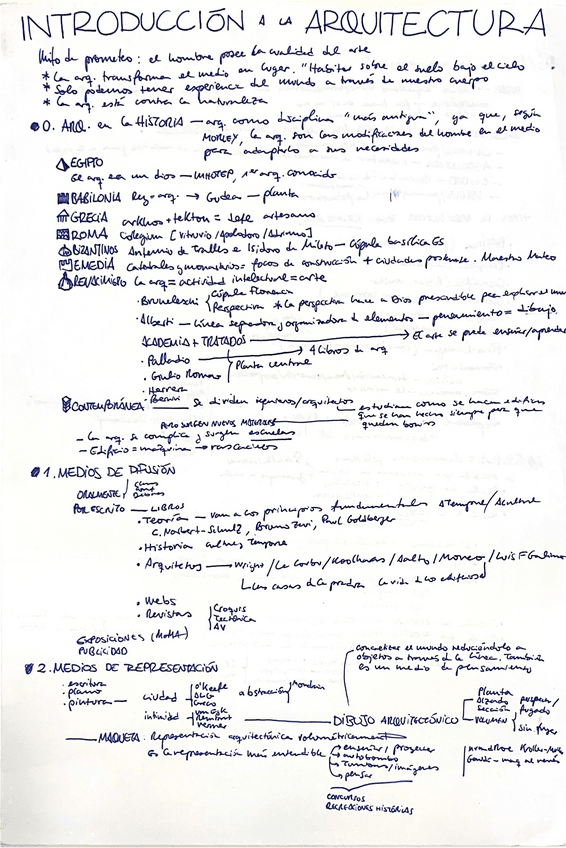 INTRODUCCIÓN A LA ARQUITECTURA
Mito de prometeo: el hombre posee la cualidad del arte
* La arq. transforma el medio en lugar. "Habitar sobre el suelo bajo el cielo
* Solo podemos tener experiencia del mundo a través de nuestro cuerpo
* La arq. está contra la naturaleza
0. ARQ. en la HISTORIA — arq. como disciplina "más antigua", ya que, según
MORLEY, la arq. son las modificaciones del hombre en el medio
para adaptarlo a sus necesidades
EGIPTO
el arq. era un dios — IMHOTEP, 1er arq. conocido
BABILONIA Rey = arq. → Gudea — planta
GRECIA arkhos + tekton = jefe artesano
ROMA Collegium [Vitruvio/Apolodoro/Adriano]
BIZANTINOS Antemio de Tralles e Isidoro de Mileto — Cúpula basílica
E MEDIA Catedrales y monasterios = focos de construcción + ciudades Maestro Mateo
RENACIMIENTO La arq = actividad intelectual = arte
· Brunelleschi Cúpula Florencia
Perspectiva * la perspectiva hace a Dios prescindible para explicar el
· Alberti — Línea separadora y organizadora de elementos — pensamiento = dibujo
ACADEMIA + TRATADOS → El arte se puede enseñar/aprender
· Palladio → 4 Libros de arq
· Giulio Romano Planta central
· Herrera
· Bernini
CONTEMPORÁNEA Se dividen ingenieros/arquitectos estudian como se hacen edificios
que se han hecho siempre para que
queden bonitos
PERO SURGEN NUEVOS MATERIALES
- La arq. se complica y surgen escuelas
- Edificio = máquina → rascacielos
1. MEDIOS DE DIFUSIÓN
ORALMENTE
POR ESCRITO — LIBROS
· Teoría — van a los principios fundamentales
C. Norberg-Schulz, Bruno Zevi, Paul Goldberger
· Historia
· Arquitectos → Wright/Le Corbu/Koolhaas/Aalto/Moneo/Luis F Galiano
· Webs
· Revistas Croquis
Tectónica
AV
EXPOSICIONES (MoMA)
PUBLICIDAD
concretizar el mundo reduciéndolo a
objetos a través de la línea. También
es un medio de pensamiento
2. MEDIOS DE REPRESENTACIÓN
· escritura
· plano
· pintura — ciudad O'Keefe abstracción Mondrian
Greco
intimidad
Rembrandt
Vermeer
DIBUJO ARQUITECTÓNICO
Planta
Alzado
Sección
volumen
fugado
sin fugar
MAQUETA: Representación arquitectónica volumétricamente
Es la representación más entendible → enseñar/proyectar
→ autobombo
→ /imágenes
→ pensar
CONCURSOS
RECREACIONES HISTÓRICAS